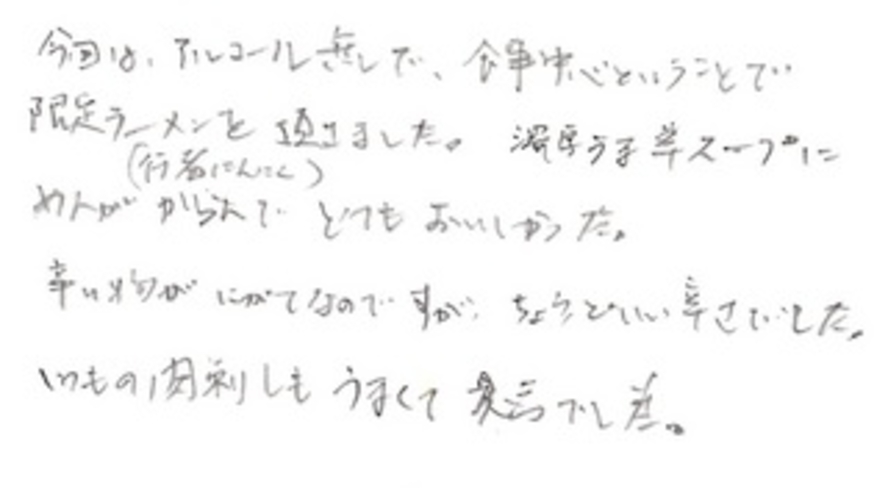 今回は、アルコール無しで、食事中心ということで
限定ラーメンを頂きました。濃厚うま辛スープに
(行者にんにく)
めんがからんでとてもおいしかった。
辛い物がにがてなのですが、ちょうどいい辛さでした。
いつもの肉刺しもうまくて最高でした。